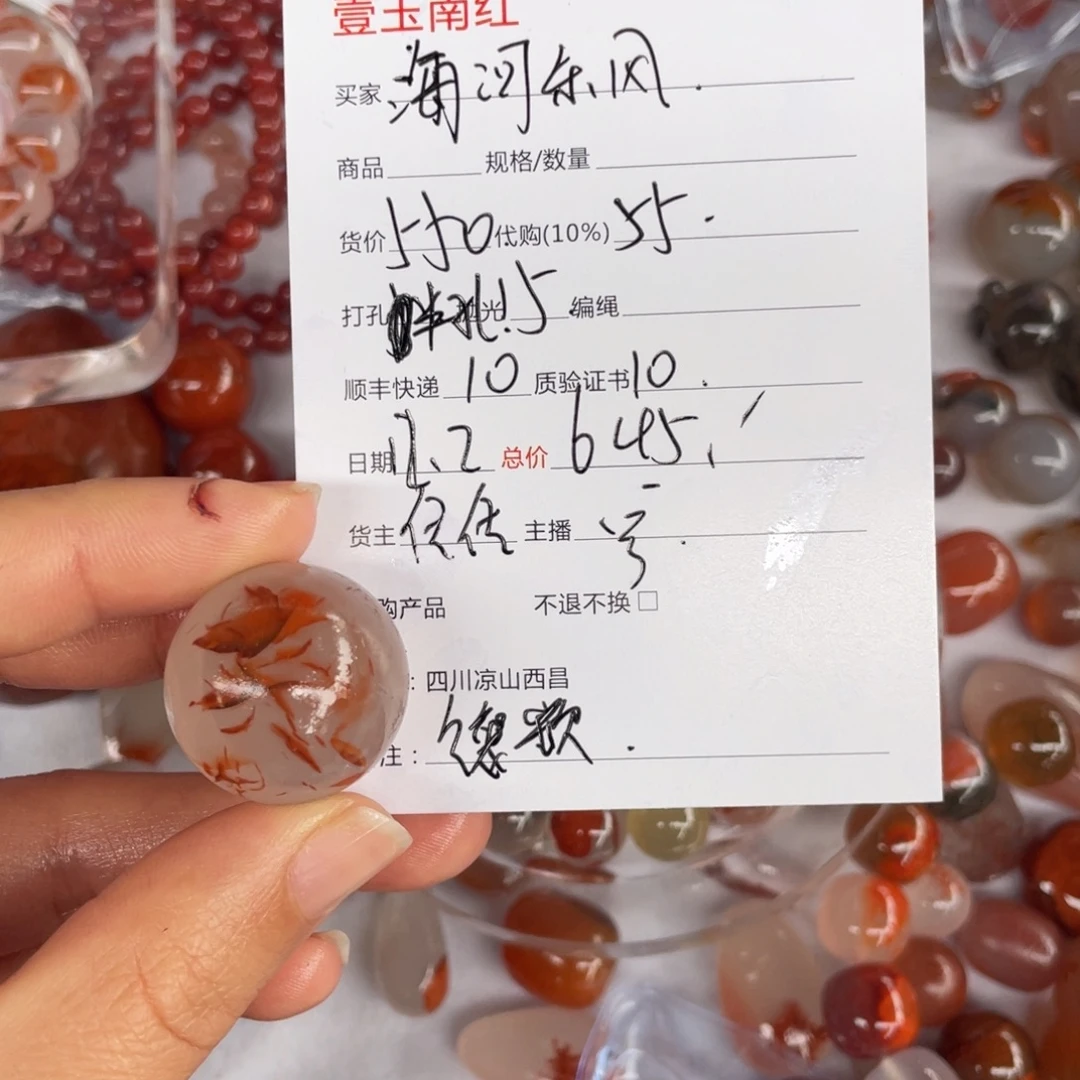 壹玉南红
买家 海河东风.
商品 规格/数量
货价 550 代购(10%) 55.
打孔 半孔.15 编绳
顺丰快递 10 质验证书 10.
日期 11.2 总价 645.
货主 任任 主播
购产品 不退不换□
: 四川凉山西昌
注: 缓款.